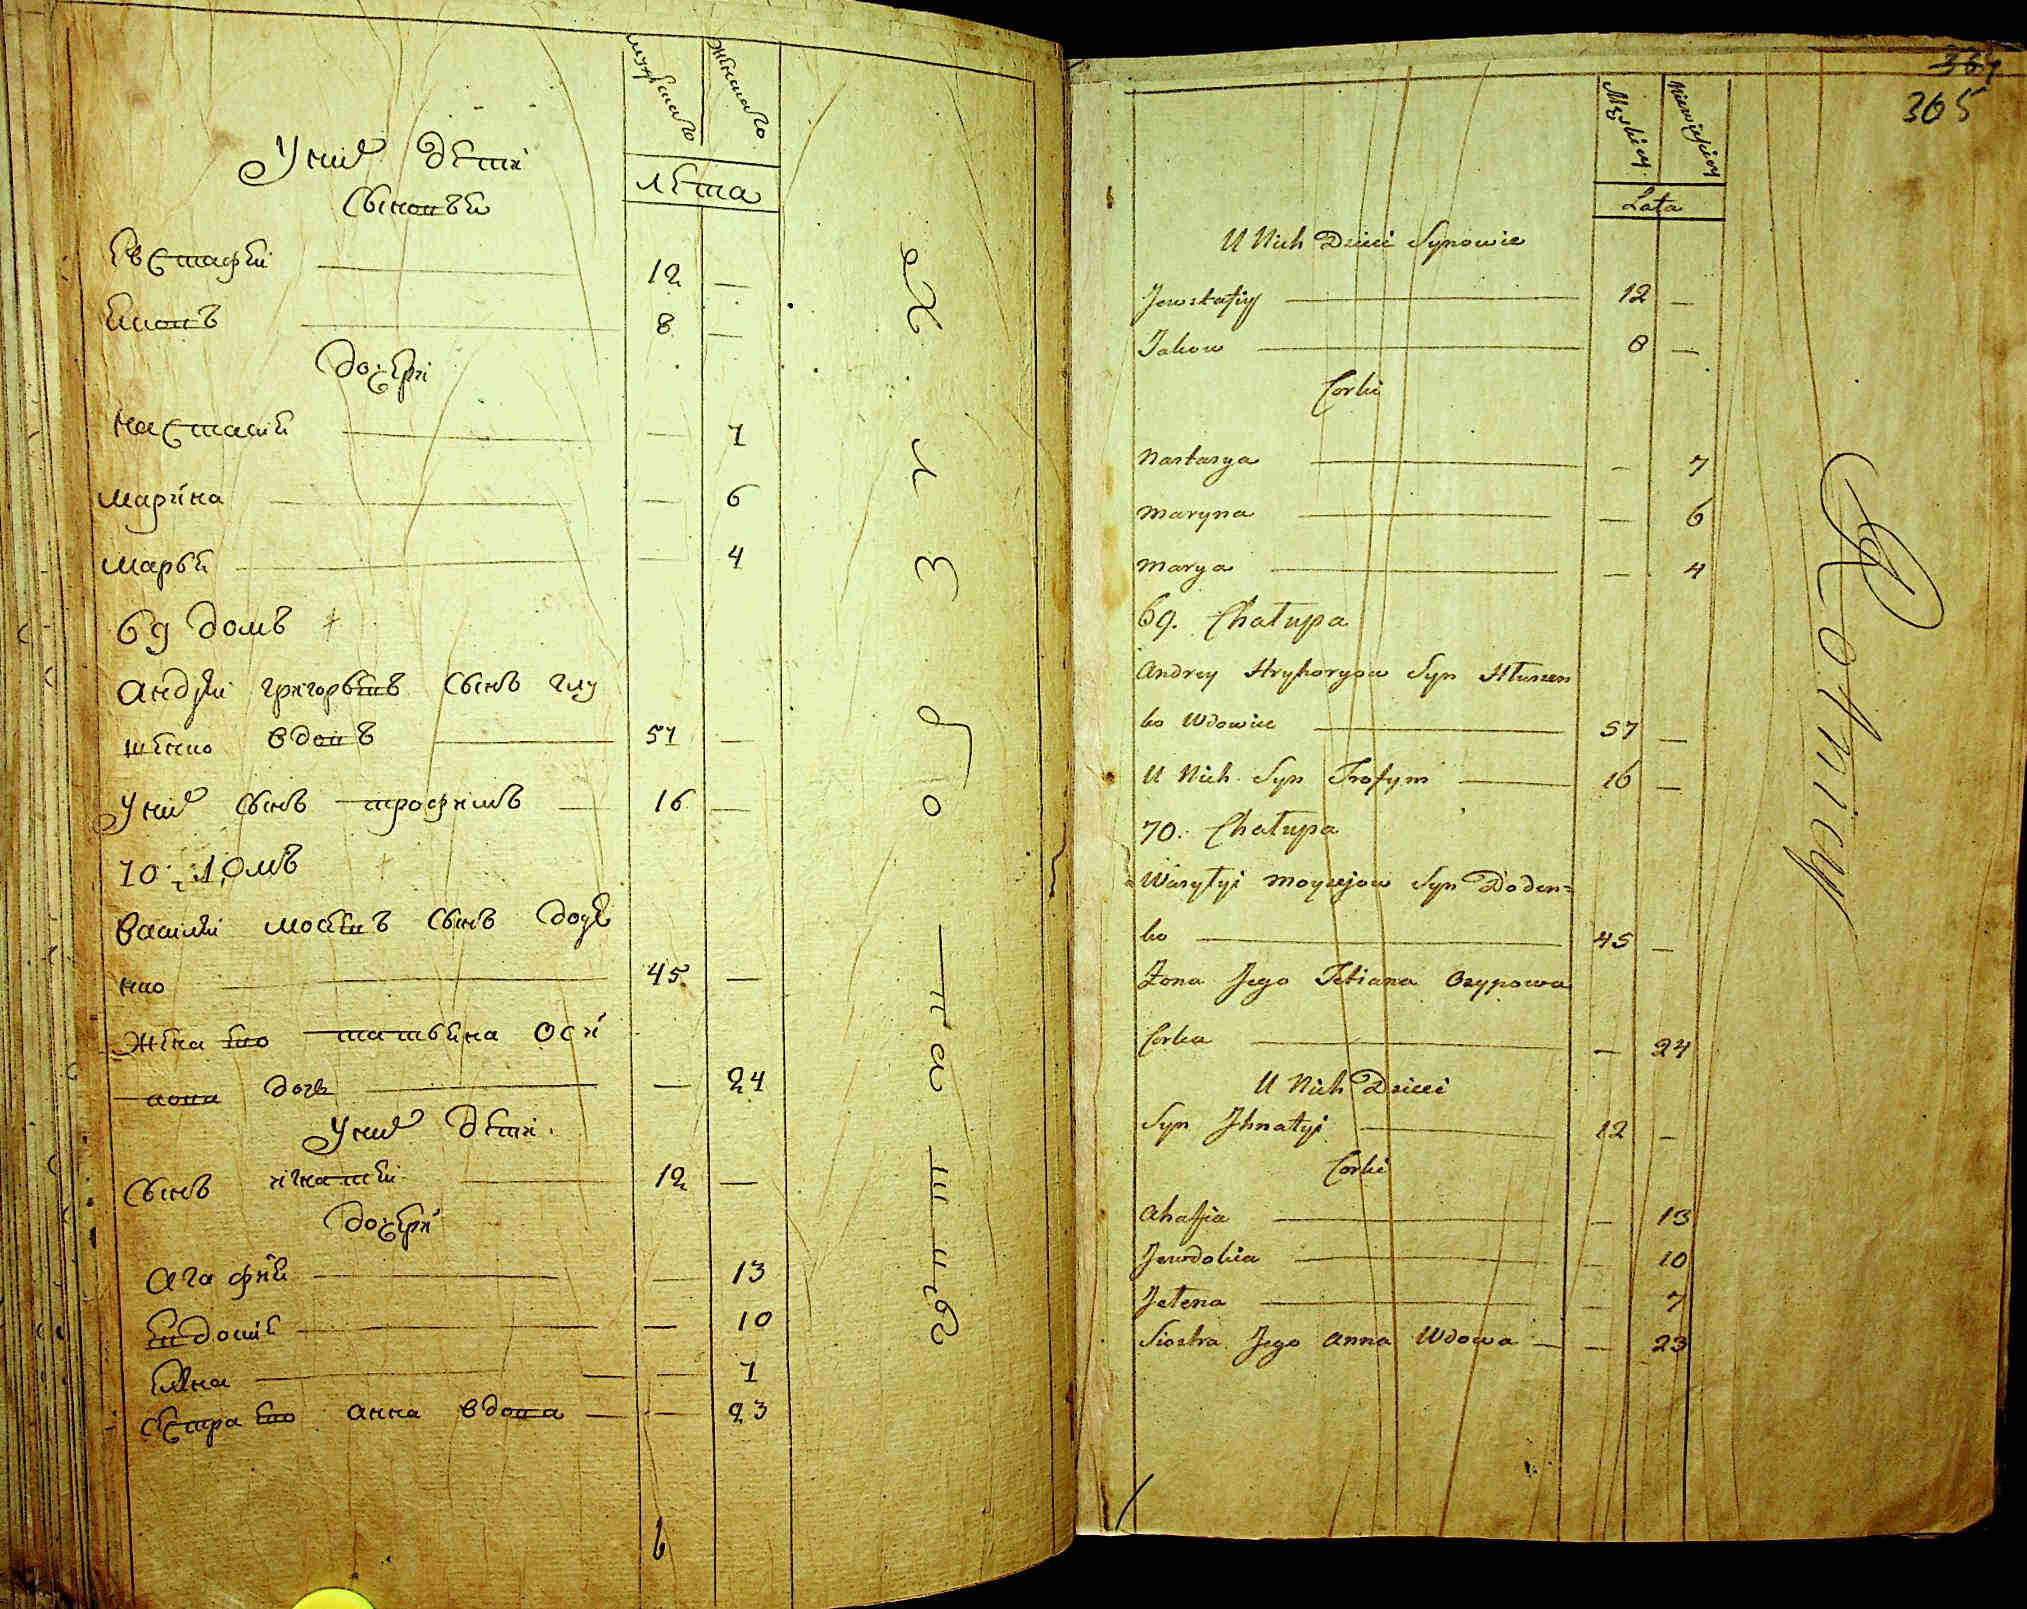 мужеска женска
лета
У них дети
сыновъя
Евстафей 12 —
Яковъ 8 —
дочери
Настасия — 7
Марина — 6
Марья — 4
69 домъ
Андрей григорьевъ сынъ глу
щенко вдовъ 57 —
У них сынъ трофимъ 16 —
70 домъ
Василей мосеевъ сынъ доде
нко 45 —
жена ево татьяна оси
пова дочь — 24
У них дети
сынъ игнатей 12 —
дочери
Агафия — 13
Евдокия — 10
Елена — 7
сестра ево анна вдова — 23
364
305
Męskiey Niewieściey
Lata
U Nich Dzieci Synowie
Jewstafiy 12 —
Jakow 8 —
Corki
Nastasya — 7
Maryna — 6
Marya — 4
69. Chałupa
Andrey Hryhoryow Syn Hłuszen
ko Wdowiec 57 —
U Nich Syn Trofym 16 —
70. Chałupa
Wasyłyi Moysejow Syn Doden=
ko 45 —
Żona Jego Tetiana Osypowa
Corka — 24
U Nich Dzieci
Syn Jhnatyi 12 —
Corki
Ahafia — 13
Jewdokia — 10
Jełena — 7
Siostra Jego Anna Wdowa — 23
Rotnicy